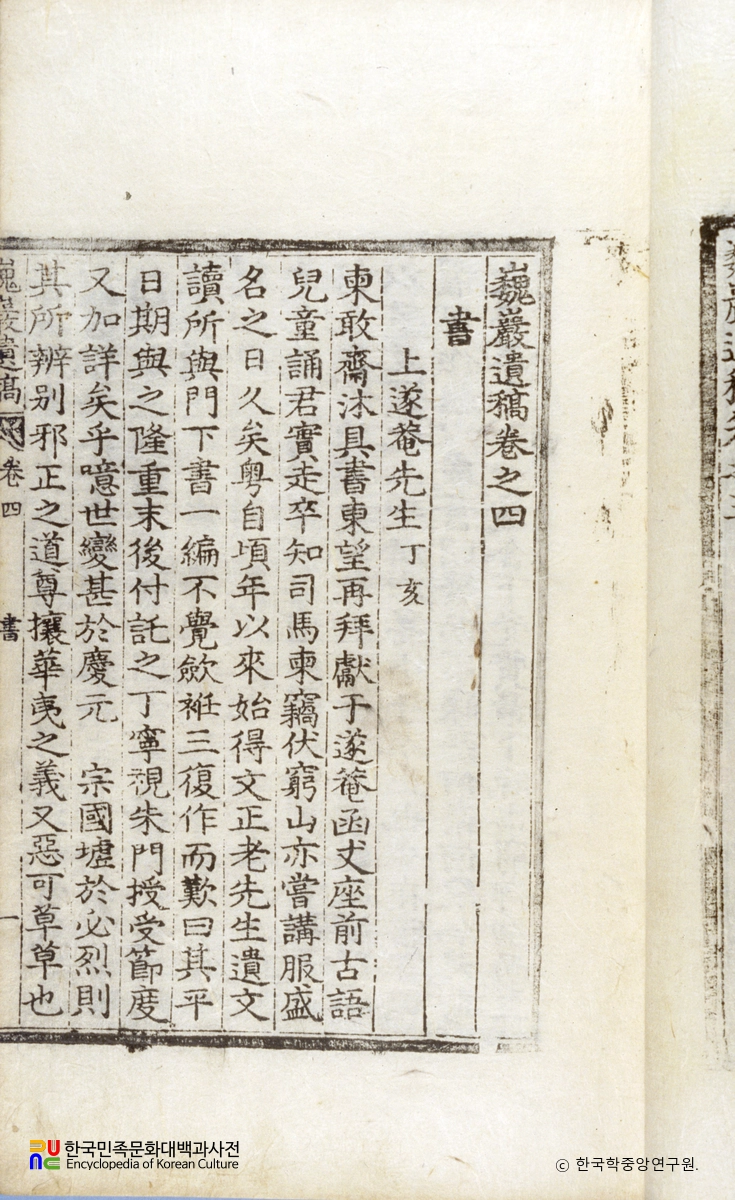 巍巖遺稿卷之四
書
上遂菴先生 丁亥
柬敢齋沐具書東望再拜獻于遂菴函丈座前古語
兒童誦君實走卒知司馬柬竊伏窮山亦嘗講服盛
名之日久矣粤自頃年以來始得文正老先生遺文
讀所與門下書一編不覺歛袵三復作而歎曰其平
日期與之隆重末後付託之丁寧視朱門授受節度
又加詳矣乎噫世變甚於慶元 宗國墟於必烈則
其所辨别邪正之道尊攘華夷之義又惡可草草也
巍巖遺稿 卷四 書 一
한국민족문화대백과사전
Encyclopedia of Korean Culture
© 한국학중앙연구원.